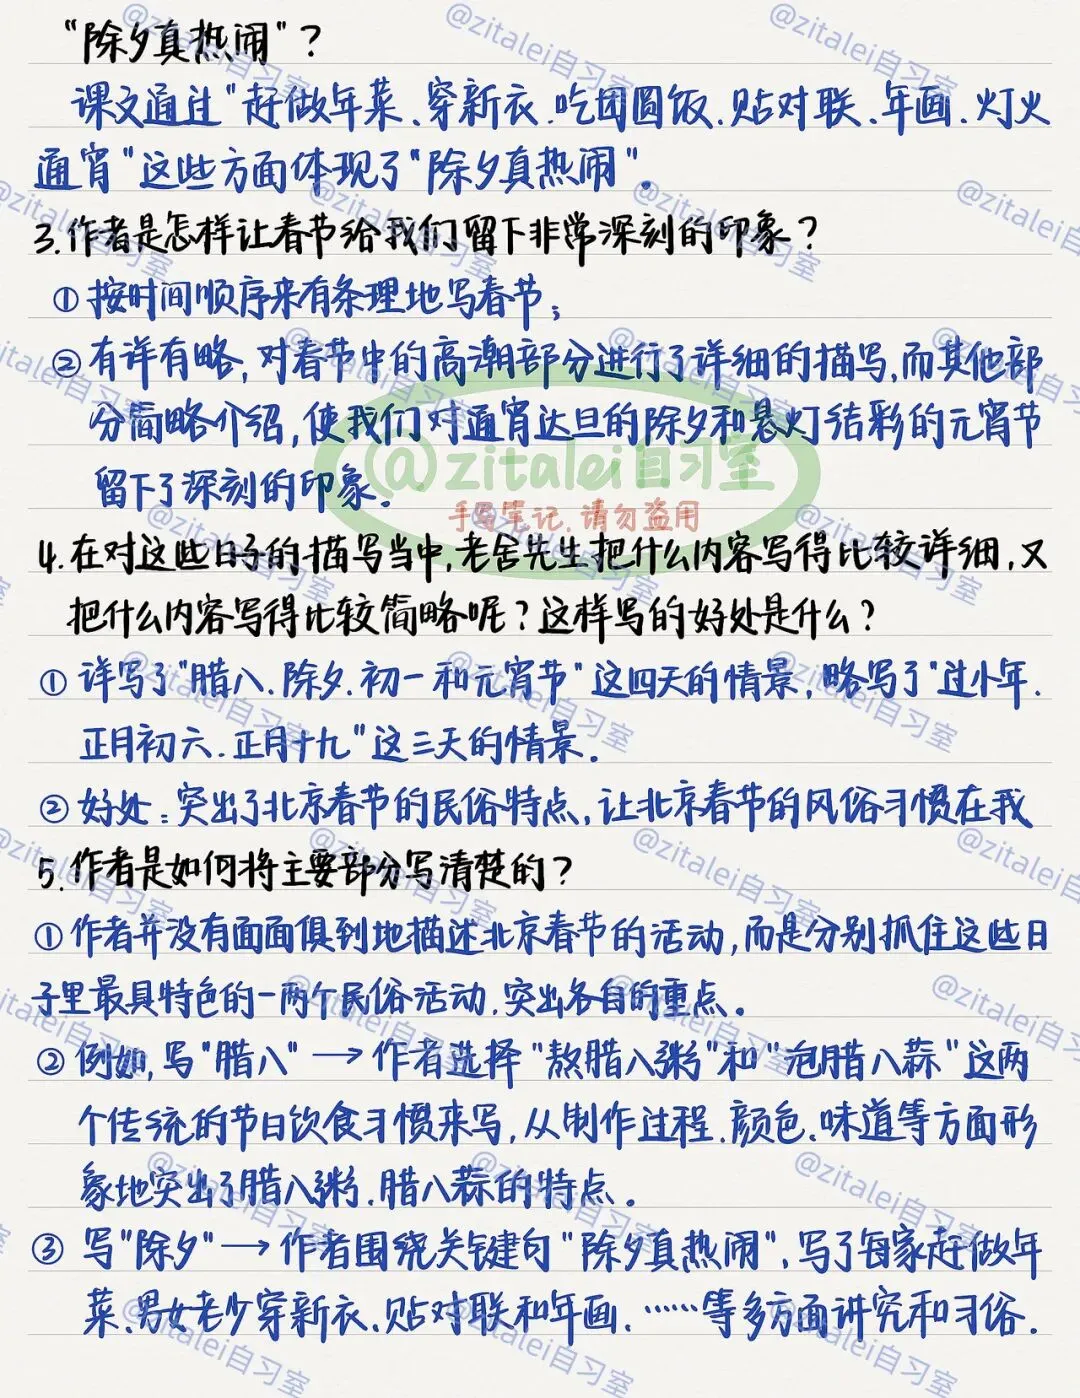 "除夕真热闹"？
课文通过"赶做年菜、穿新衣、吃团圆饭、贴对联、年画、灯火
通宵"这些方面体现了"除夕真热闹"。
3.作者是怎样让春节给我们留下非常深刻的印象？
①按时间顺序来有条理地写春节；
②有详有略，对春节中的高潮部分进行了详细的描写，而其他部
分简略介绍，使我们对通宵达旦的除夕和悬灯结彩的元宵节
@zitalei自习室
留下了深刻的印象。
手写笔记，请勿盗用
4.在对这些日子的描写当中，老舍先生把什么内容写得比较详细，又
把什么内容写得比较简略呢？这样写的好处是什么？
①详写了"腊八、除夕、初一和元宵节"这四天的情景，略写了"过小年、
正月初六、正月十九"这三天的情景。
②好处：突出了北京春节的民俗特点，让北京春节的风俗习惯在我
5.作者是如何将主要部分写清楚的？
①作者并没有面面俱到地描述北京春节的活动，而是分别抓住这些日
子里最具特色的一两个民俗活动，突出各自的重点。
②例如，写"腊八"→作者选择"熬腊八粥"和"泡腊八蒜"这两
个传统的节日饮食习惯来写，从制作过程、颜色、味道等方面形
象地突出了腊八粥、腊八蒜的特点。
③写"除夕"→作者围绕关键句"除夕真热闹"，写了每家赶做年
菜、男女老少穿新衣、贴对联和年画、……等多方面讲究和习俗。